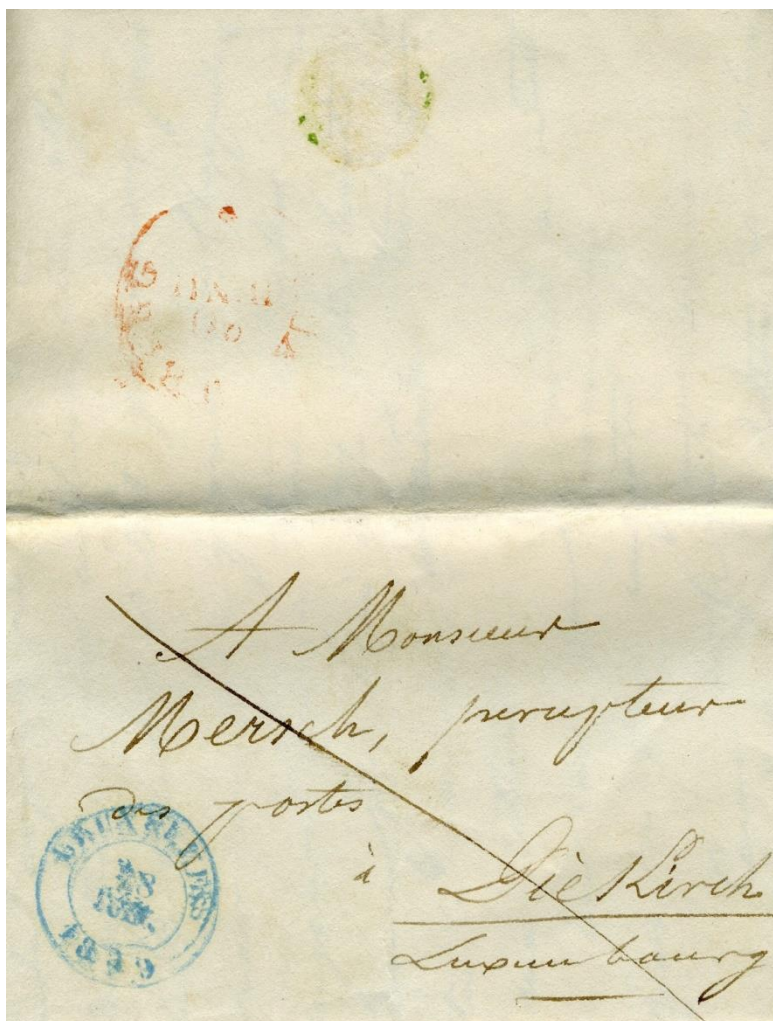 A Monsieur
Mersch, percepteur
des postes
à Diekirch
Luxembourg
BRUXELLES
28